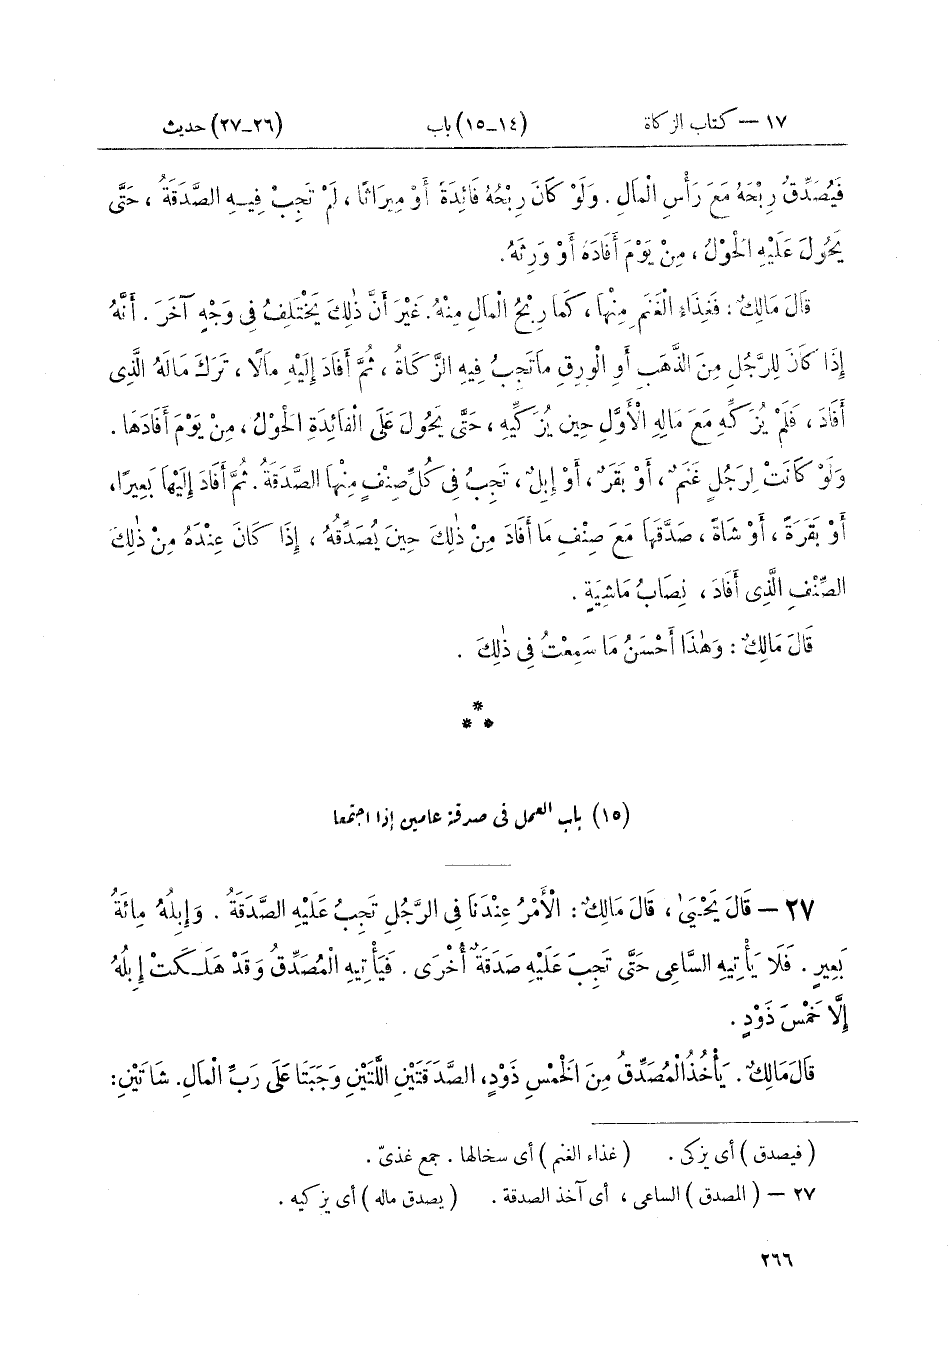 ١٧ – كتاب الزكاة (١٤–١٥) باب (٢٦–٢٧) حديث
فَيُصَدِّقُ رِبْحَهُ مَعَ رَأْسِ الْمَالِ . وَلَوْ كَانَ رِبْحُهُ فَائِدَةً أَوْ مِيرَاثًا ، لَمْ تَجِبْ فِيهِ الصَّدَقَةُ ، حَتَّى
يَحُولَ عَلَيْهِ الْحَوْلُ ، مِنْ يَوْمَ أَفَادَهُ أَوْ وَرِثَهُ .
قَالَ مَالِكٌ : فَغِذَاءُ الْغَنَمِ مِنْهَا ، كَمَا رِبْحُ الْمَالِ مِنْهُ . غَيْرَ أَنَّ ذٰلِكَ يَخْتَلِفُ فِى وَجْهٍ آخَرَ . أَنَّهُ
إِذَا كَانَ لِلرَّجُلِ مِنَ الذَّهَبِ أَوِ الْوَرِقِ مَا تَجِبُ فِيهِ الزَّكَاةُ ، ثُمَّ أَفَادَ إِلَيْهِ مَالًا ، تَرَكَ مَالَهُ الَّذِى
أَفَادَ ، فَلَمْ يُزَكِّهِ مَعَ مَالِهِ الْأَوَّلِ حِينَ يُزَكِّيهِ ، حَتَّى يَحُولَ عَلَى الْفَائِدَةِ الْحَوْلُ ، مِنْ يَوْمَ أَفَادَهَا .
وَلَوْ كَانَتْ لِرَجُلٍ غَنَمٌ ، أَوْ بَقَرٌ ، أَوْ إِبِلٌ ، تَجِبُ فِى كُلِّ صِنْفٍ مِنْهَا الصَّدَقَةُ . ثُمَّ أَفَادَ إِلَيْهَا بَعِيرًا ،
أَوْ بَقَرَةً ، أَوْ شَاةً ، صَدَّقَهَا مَعَ صِنْفِ مَا أَفَادَ مِنْ ذٰلِكَ حِينَ يُصَدِّقُهُ ، إِذَا كَانَ عِنْدَهُ مِنْ ذٰلِكَ
الصِّنْفِ الَّذِى أَفَادَ ، نِصَابُ مَاشِيَةٍ .
قَالَ مَالِكٌ : وَهٰذَا أَحْسَنُ مَا سَمِعْتُ فِى ذٰلِكَ .
*
* *
(١٥) باب العمل فى صدقة عامين إذا اجتمعا
٢٧ – قَالَ يَحْيَىٰ ، قَالَ مَالِكٌ : الْأَمْرُ عِنْدَنَا فِى الرَّجُلِ تَجِبُ عَلَيْهِ الصَّدَقَةُ . وَإِبِلُهُ مِائَةُ
بَعِيرٍ . فَلَا يَأْتِيهِ السَّاعِى حَتَّى تَجِبَ عَلَيْهِ صَدَقَةٌ أُخْرَى . فَيَأْتِيهِ الْمُصَدِّقُ وَقَدْ هَلَكَتْ إِبِلُهُ
إِلَّا خَمْسَ ذَوْدٍ .
قَالَ مَالِكٌ . يَأْخُذُ الْمُصَدِّقُ مِنَ الْخَمْسِ ذَوْدٍ ، الصَّدَقَتَيْنِ اللَّتَيْنِ وَجَبَتَا عَلَى رَبِّ الْمَالِ . شَاتَيْنِ :
( فيصدق ) أى يزكى . ( غذاء الغنم ) أى سخالها . جمع غذىّ .
٢٧ – ( المصدق ) الساعى ، أى آخذ الصدقة . ( يصدق ماله ) أى يزكيه .
٢٦٦